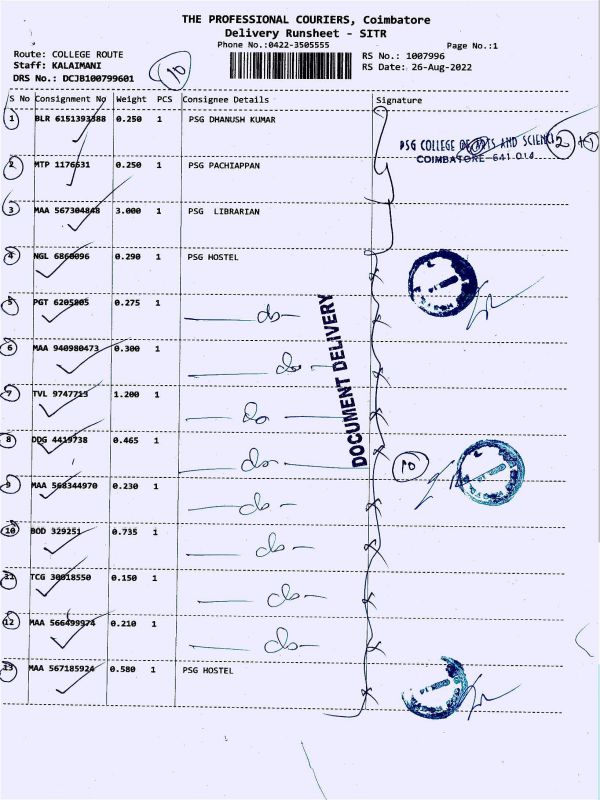 THE PROFESSIONAL COURIERS, Coimbatore
Delivery Runsheet - SITR
Phone No.:0422-3505555
Page No.:1
Route: COLLEGE ROUTE
Staff: KALAIMANI
DRS No.: DCJB100799601
10
RS No.: 1007996
RS Date: 26-Aug-2022
S No Consignment No Weight PCS Consignee Details Signature
1 BLR 6151393388 0.250 1 PSG DHANUSH KUMAR
PSG COLLEGE OF ARTS AND SCIENCE
COIMBATORE-641 014
2 MTP 1176631 0.250 1 PSG PACHIAPPAN
3 MAA 567304848 3.000 1 PSG LIBRARIAN
4 NGL 6860096 0.290 1 PSG HOSTEL
5 PGT 6205805 0.275 1 do
6 MAA 940980473 0.300 1 do
7 TVL 9747713 1.200 1 do
DOCUMENT DELIVERY
8 DDG 4419738 0.465 1 do
10
9 MAA 568344970 0.230 1 do
10 BOD 329251 0.735 1 do
11 TCG 30818550 0.150 1 do
12 MAA 566499974 0.210 1 do
13 MAA 567185924 0.580 1 PSG HOSTEL